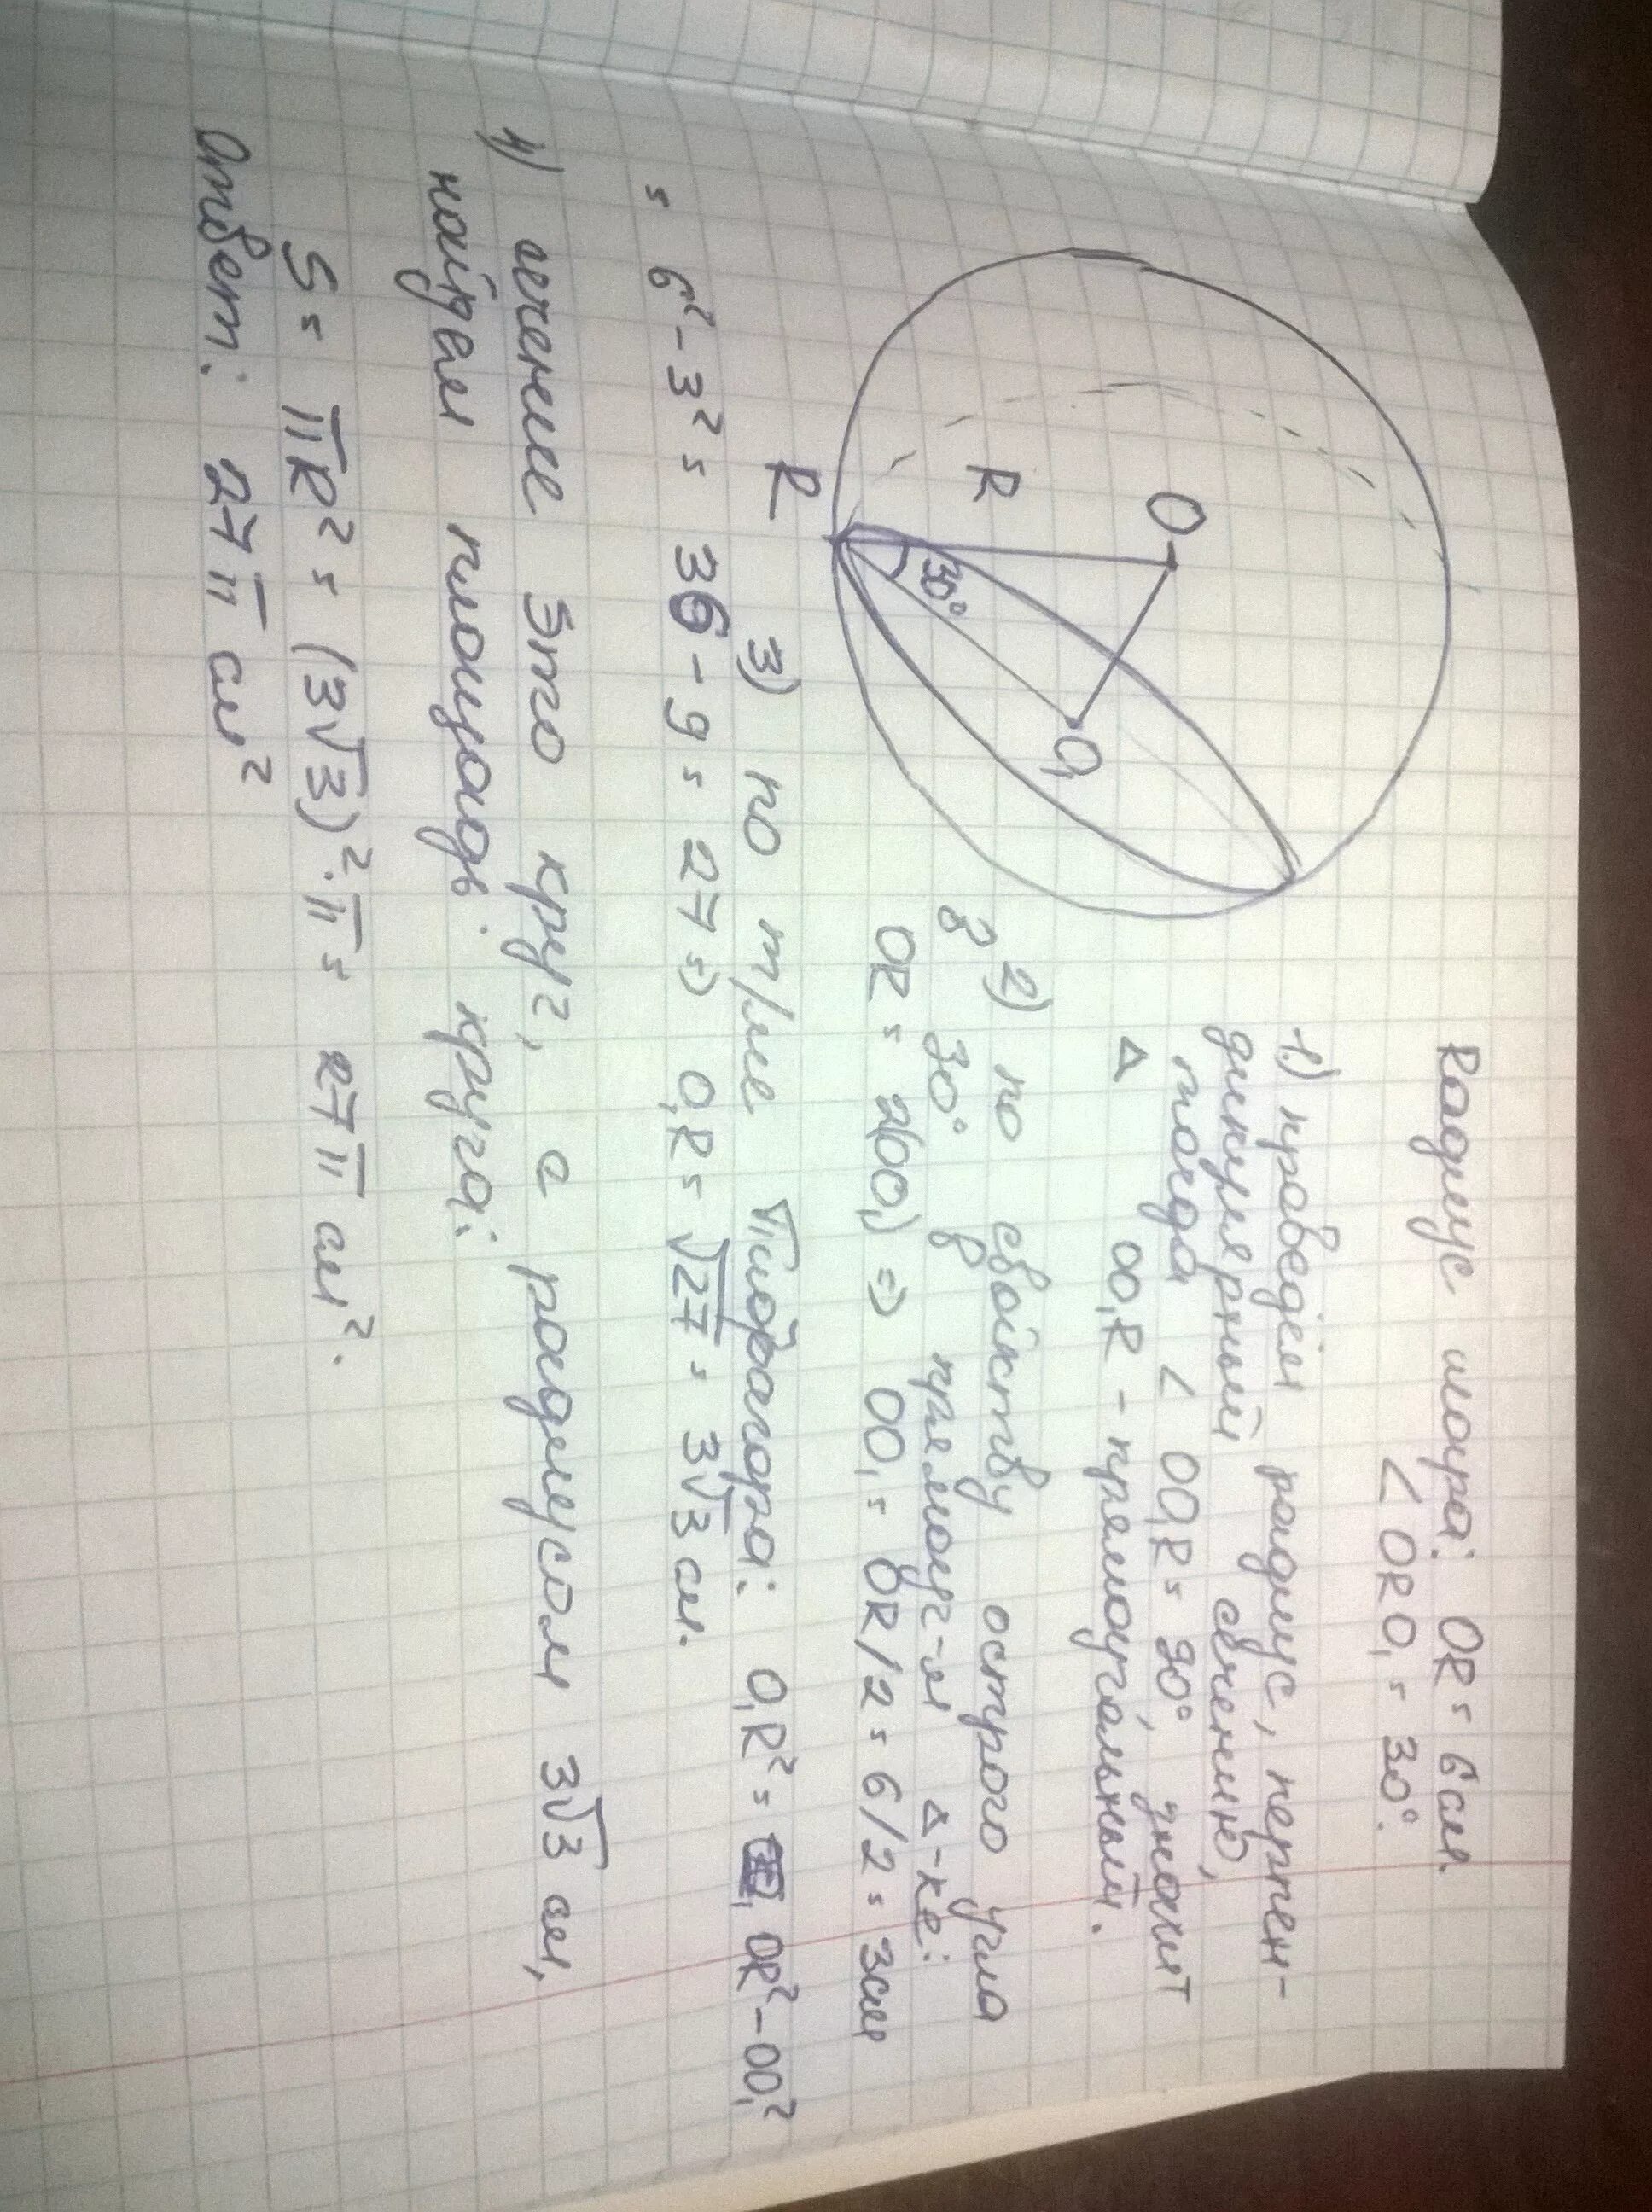 Радиус шара: OR = 6 см.
∠ ORO₁ = 30°.
1) проведём радиус, перпен-
дикулярный сечению,
тогда ∠ OO₁R = 90°, значит
Δ OO₁R - прямоугольный.
2) по свойству острого угла
в 30° в прямоуг-м Δ-ке:
OR = 2(OO₁) => OO₁ = OR/2 = 6/2 = 3см
O
R
30°
O₁
R
3) по т/ме Пифагора: O₁R² = OR² - OO₁²
= 6² - 3² = 36 - 9 = 27 => O₁R = √27 = 3√3 см.
4) сечение это круг, а радиусом 3√3 см,
найдем площадь круга:
S = πR² = (3√3)²·π = 27π см².
Ответ: 27π см²